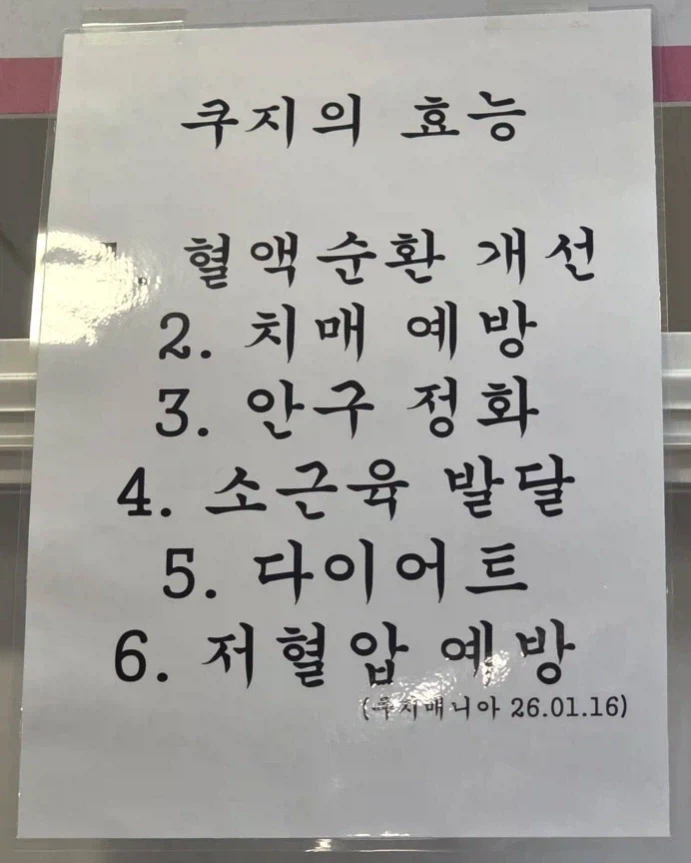 쿠지의 효능
. 혈액순환 개선
2. 치매 예방
3. 안구 정화
4. 소근육 발달
5. 다이어트
6. 저혈압 예방
(쿠지매니아 26.01.16)